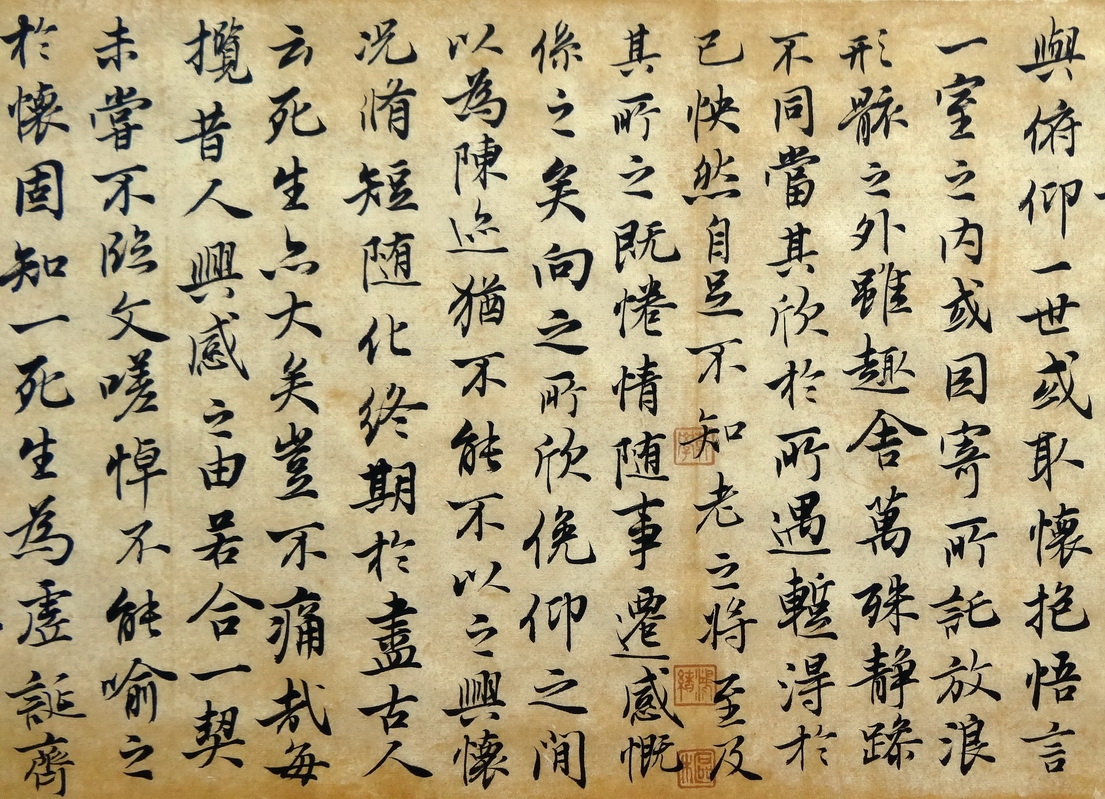 與俯仰一世或取懷抱悟言
一室之内或因寄所託放浪
形骸之外雖趣舍萬殊静躁
不同當其欣於所遇蹔得於
己怏然自足不知老之將至及
其所之既惓情随事遷感慨
係之矣向之所欣俛仰之間
以為陳迹猶不能不以之興懷
况脩短随化終期於盡古人
云死生亦大矣豈不痛哉每
攬昔人興感之由若合一契
未嘗不臨文嗟悼不能喻之
於懷固知一死生為虛誕齊